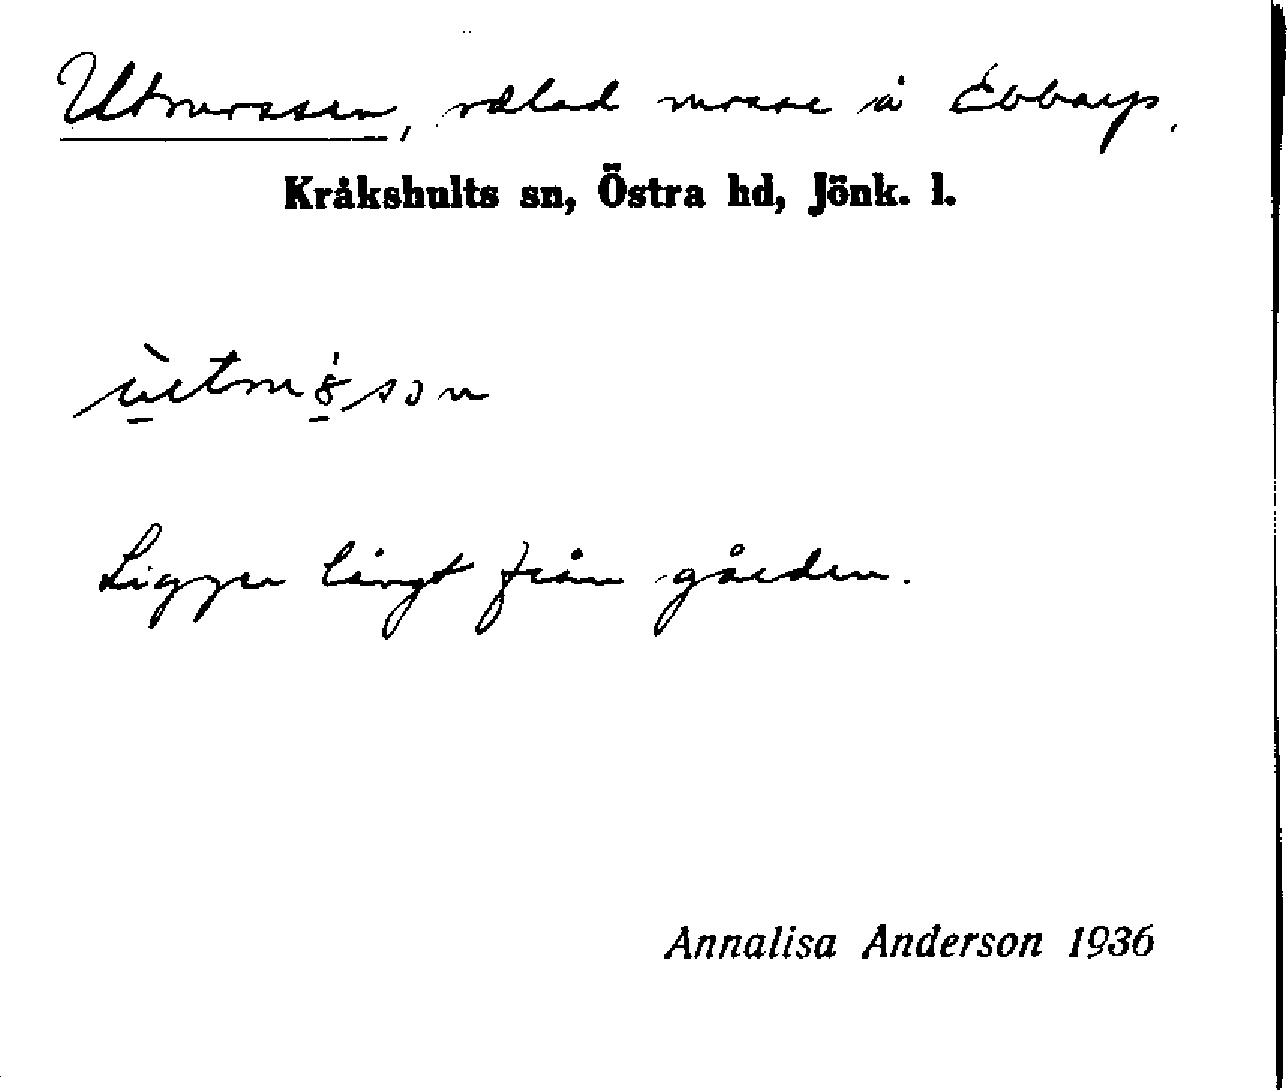 Utmossen, odlad mosse å Ebbarp.
Kråkshults sn, Östra hd, Jönk. l.
Ligger långt från gården.
Annalisa Anderson 1936